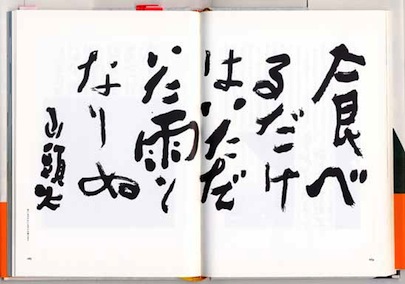 食べ
るだけ
はいただ
いた雨と
なりぬ
山頭火